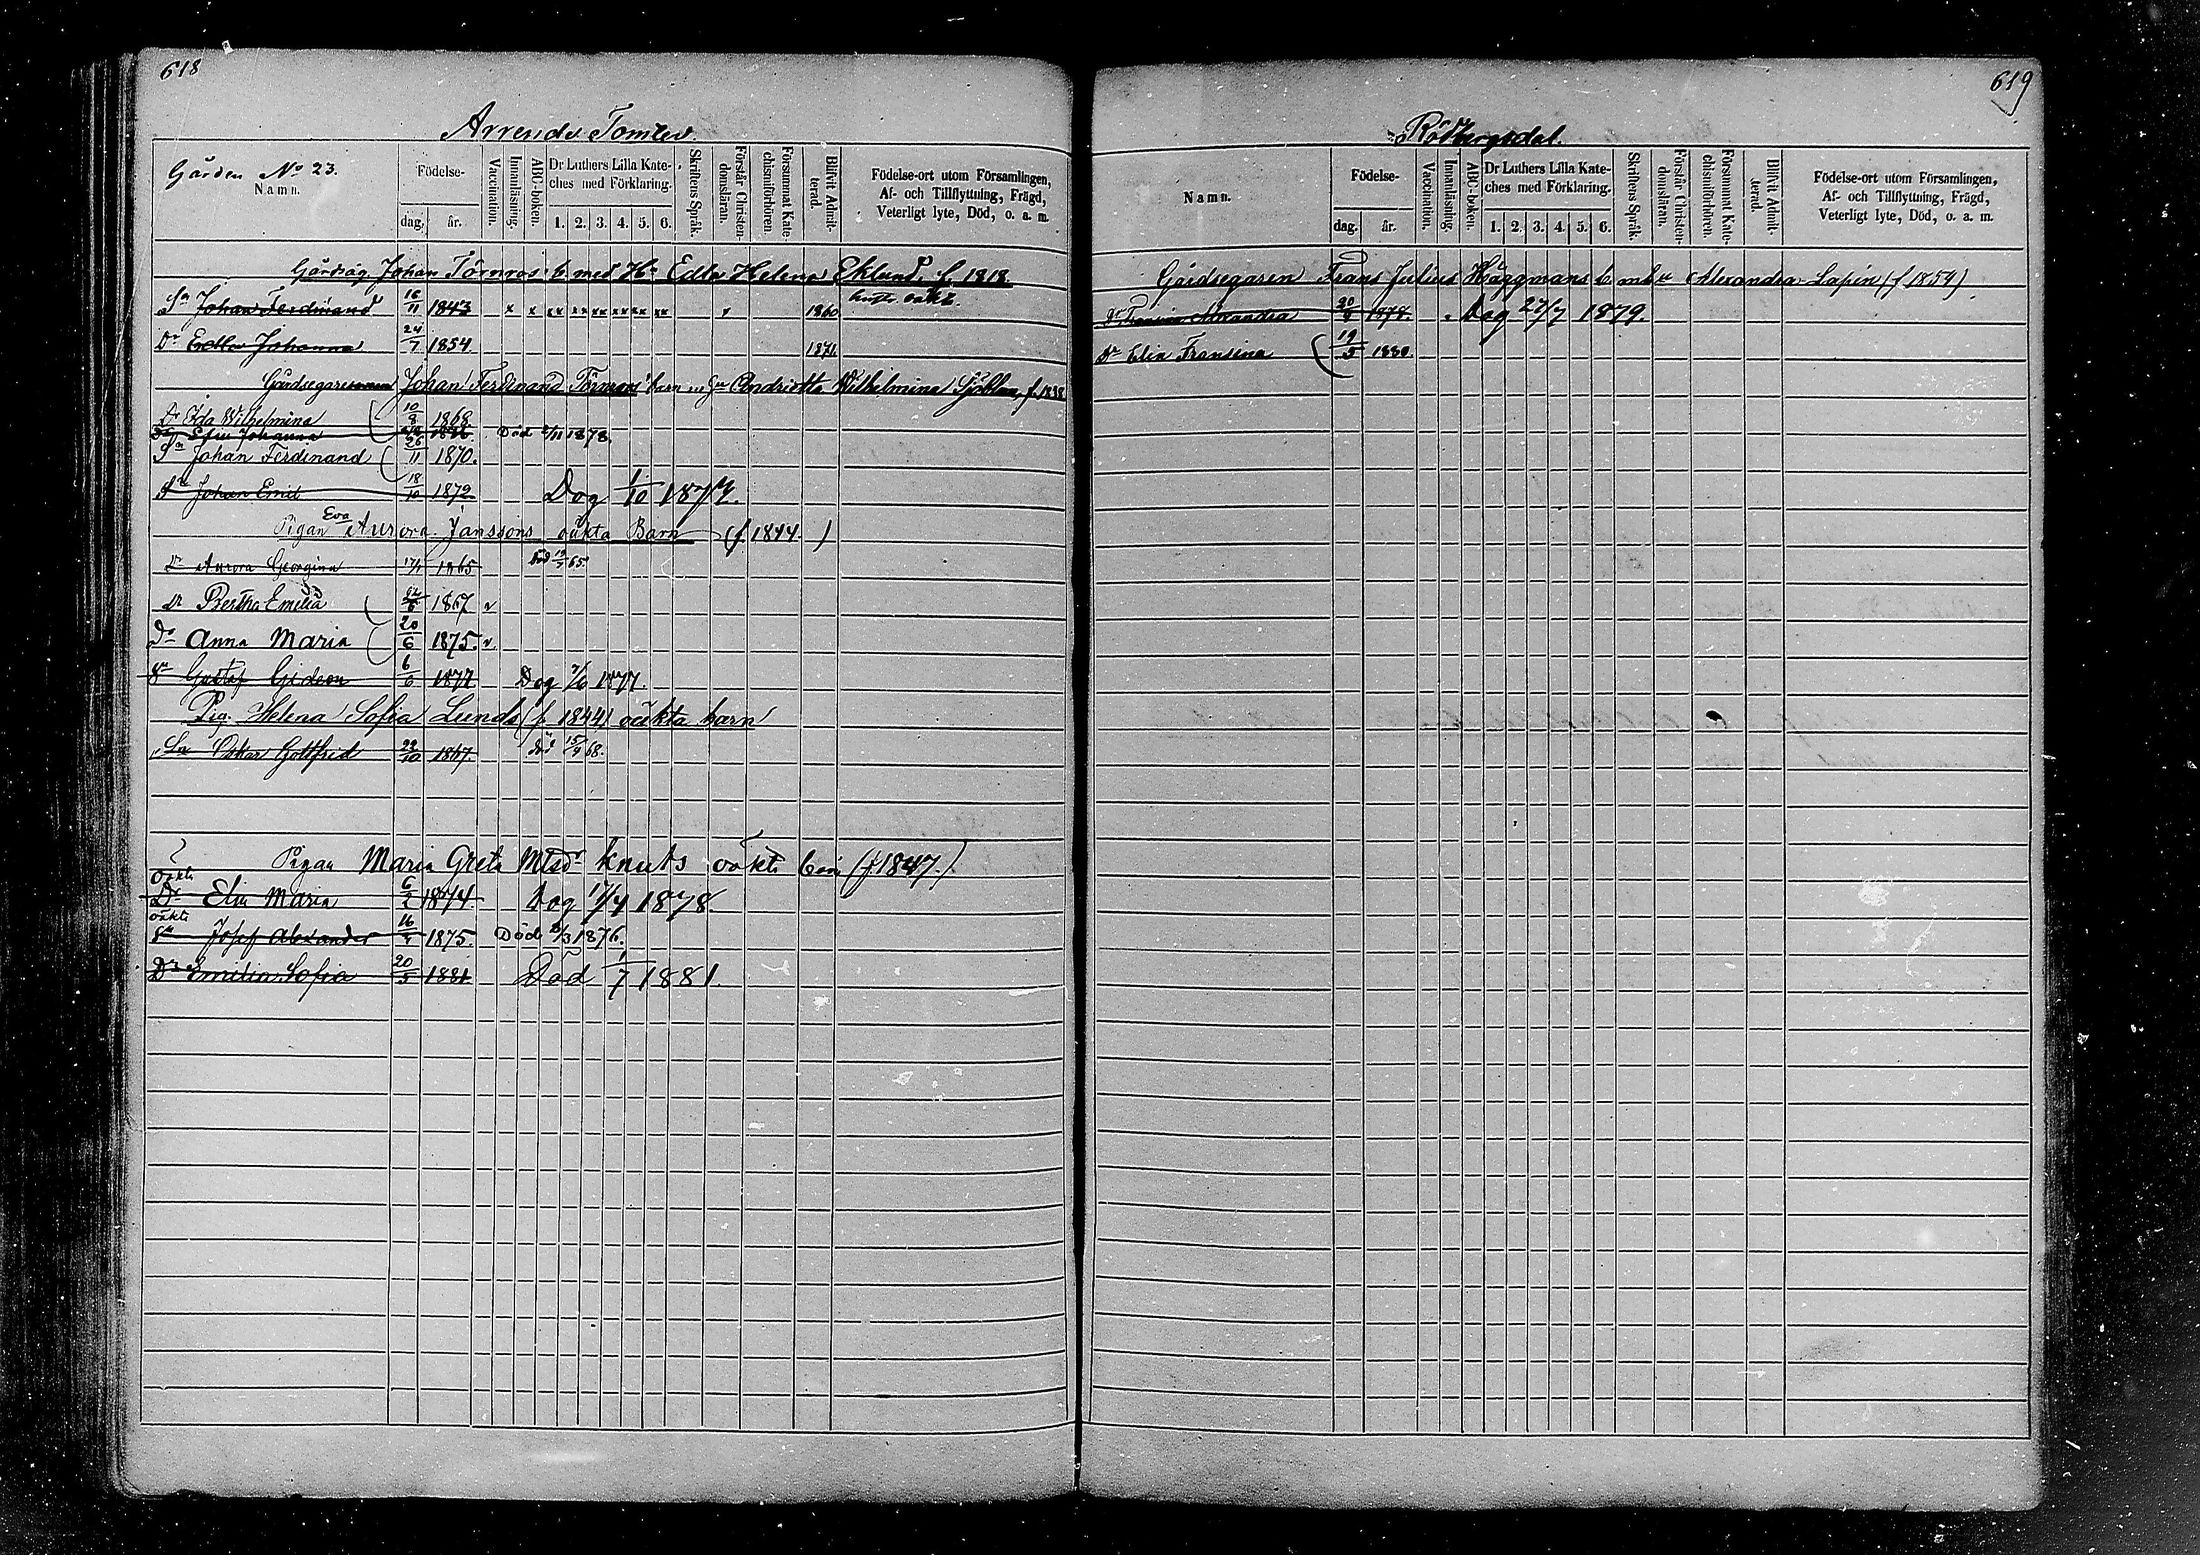 618
Arrende Tomter
Gården No 23.
Namn.
Födelse-
dag. år.
Vaccination.
Innanläsning.
ABC-boken.
Dr Luthers Lilla Kate-
ches med Förklaring.
1. 2. 3. 4. 5. 6.
Skriftens Språk.
Förstår Christen-
domsläran.
Försummat Kate-
chismiförhören
Blifvit Admit-
terad.
Födelse-ort utom Församlingen,
Af- och Tillflyttning, Frägd,
Veterligt lyte, Död, o. a. m.
Gårdsäg. Johan Törnros b. med Hu Edla Helena Eklund, f. 1818.
Sn Johan Ferdinand 16/11 1843 x x xx xx xx xx xx xx x 1860
Dr Edla Johanna 24/7 1854. 1871.
Gårdsegare Johan Ferdinand Törnros barn Andriette Wilhelmina Sjöblom, f. 1838
Dr Ida Wilhelmina 10/8 1868
Johanna Död 2/11 1878.
Sn Johan Ferdinand 26/11 1870.
Sn Johan Emil 18/10 1872 Dog 1/10 1874.
Pigan Eva Aurora Janssons oäkta Barn (f. 1844.)
Dr Aurora Georgina 1865 död 65
Dr Bertha Emelia 1867 v
Dr Anna Maria 20/6 1875. v.
Sn Gustaf Gideon 6/6 1877 Dog 7/6 1877.
Pig. Helena Sofia Lunds (f. 1844) oäkta barn
Sn Oskar Gottfrid 22/10 1867. död 15/9 68.
Pigan Maria Greta Mtsdr Knuts oäkt barn (f. 1847.)
oäkt
Dr Elin Maria 6/2 1874 Dog 17/4 1878
oäkt
Sn Josef Alexander 1875. Död 2/3 1876.
Dr Emilia Sofia 20/5 1881 Död 1/7 1881.
619
Rödbergsdal.
Namn.
Födelse-
dag. år.
Vaccination.
Innanläsning.
ABC-boken.
Dr Luthers Lilla Kate-
ches med Förklaring.
1. 2. 3. 4. 5. 6.
Skriftens Språk.
Förstår Christen-
domsläran.
Försummat Kate-
chismiförhören.
Blifvit Admit-
terad.
Födelse-ort utom Församlingen,
Af- och Tillflyttning, Frägd,
Veterligt lyte, Död, o. a. m.
Gårdsegaren Frans Julius Häggmans b. m hu Alexandra Lapin (f 1854)
Dr Alexandra 1878. Dog 27/7 1879.
Dr Elin Fransina 19/5 1880.